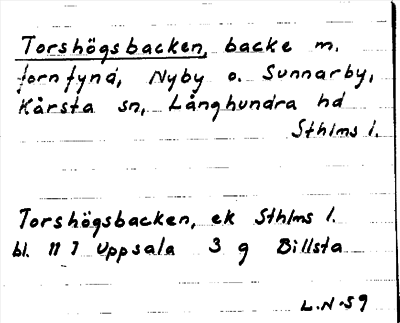 Torshögsbacken, backe m.
fornfynd, Nyby o. Sunnarby,
Kårsta sn, Långhundra hd
Sthlms l.
Torshögsbacken, ek Sthlms l.
bl. 11 I Uppsala 3 g Billsta
L.N-59